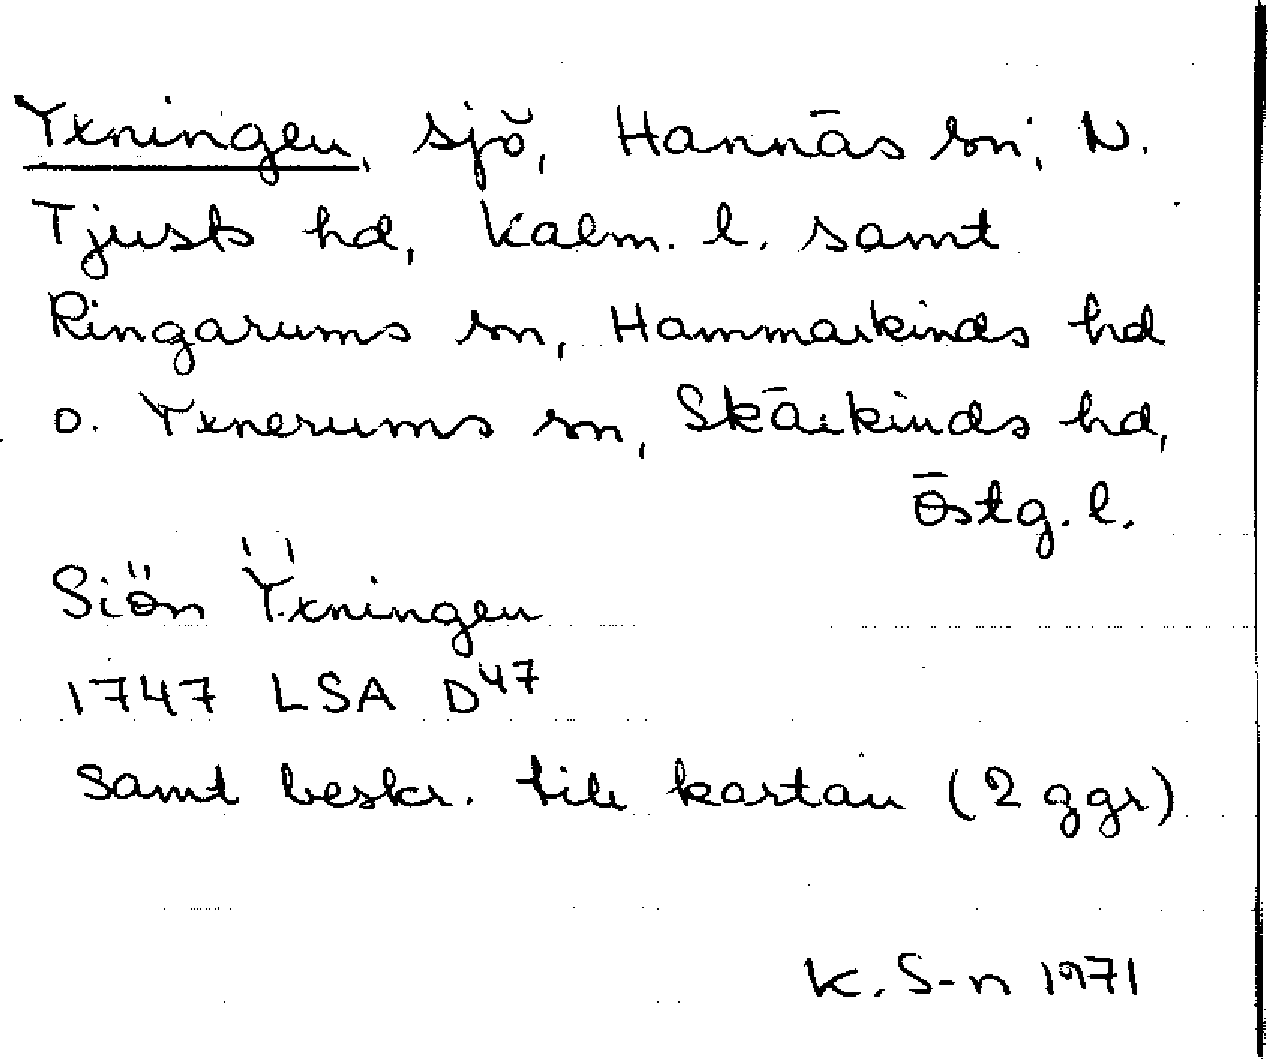 Yxningen, sjö, Hannäs sn, N.
Tjusts hd, Kalm. l. samt
Ringarums sn, Hammarkinds hd
o. Yxnerums sn, Skärkinds hd,
Östg. l.
Siön Ÿxningen
1747 LSA D47
Samt beskr. till kartan (2 ggr)
K. S-n 1971